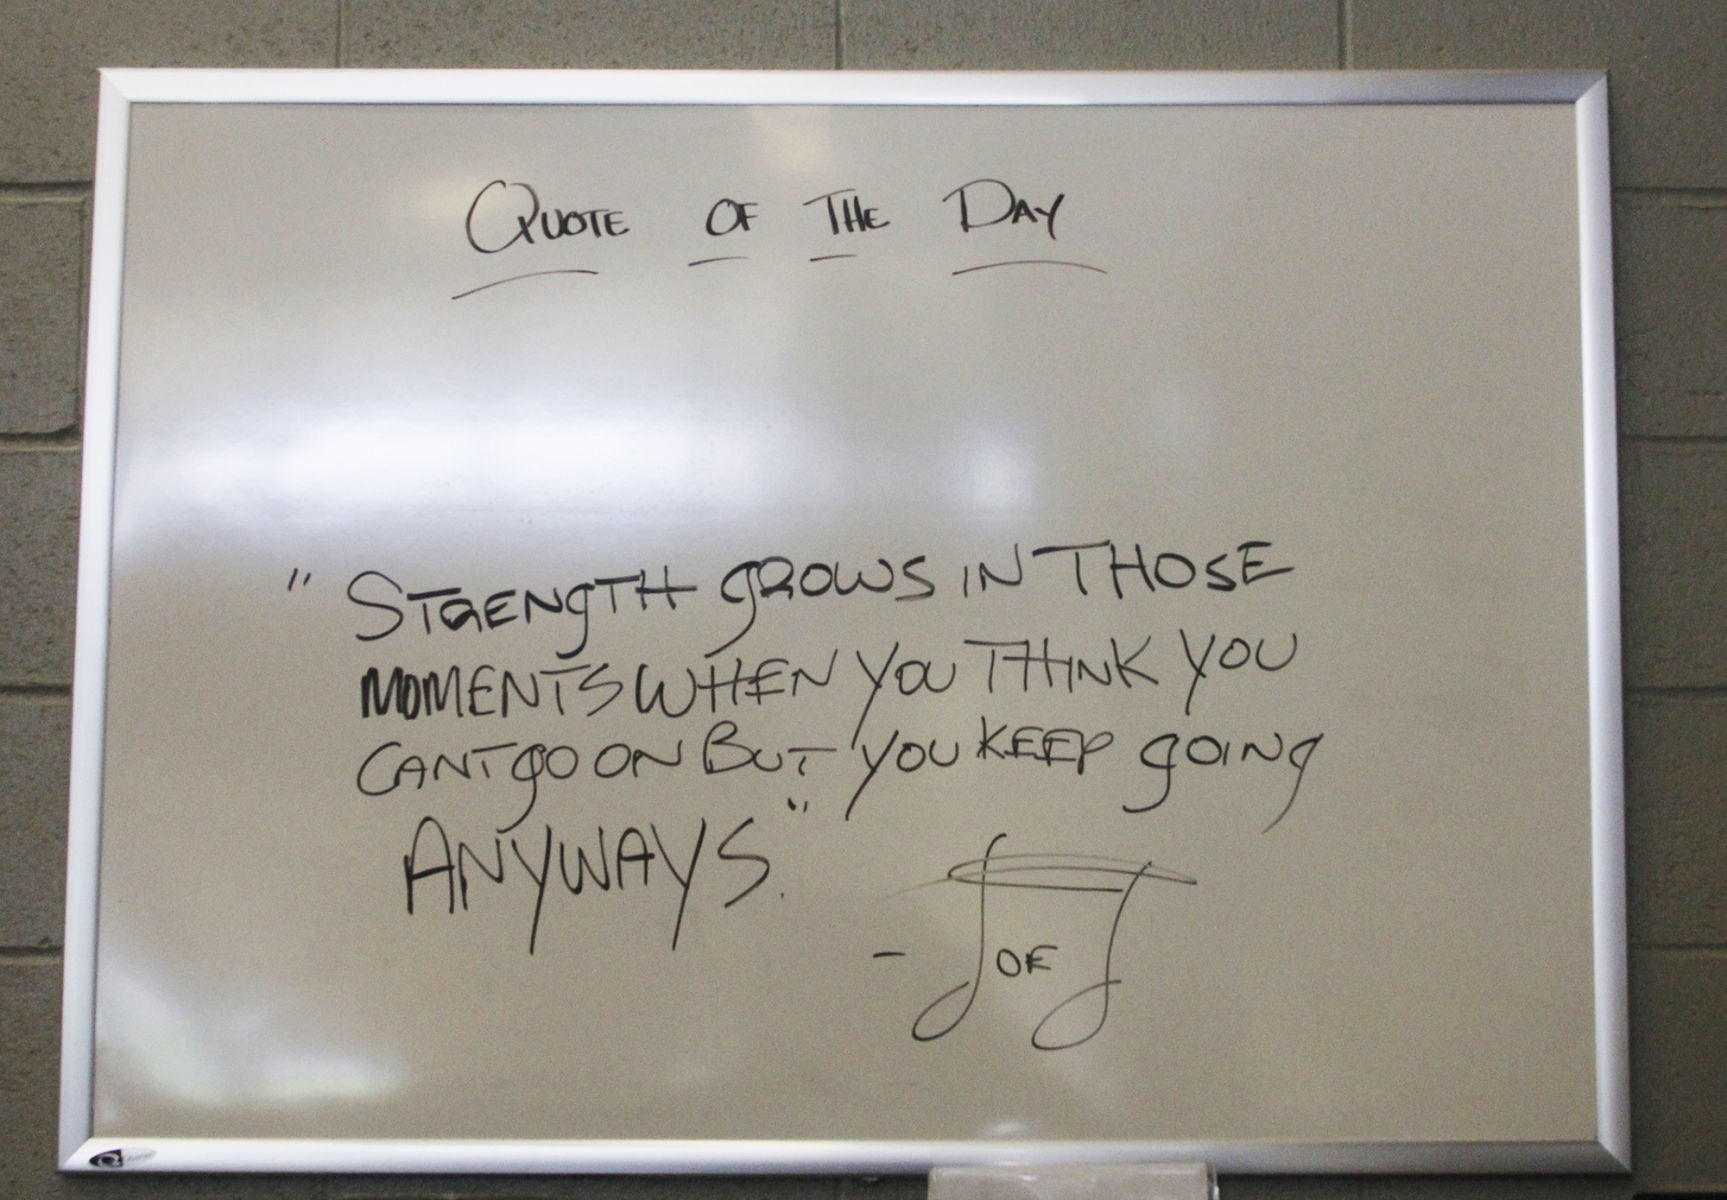 QUOTE OF THE DAY
" STRENGTH GROWS IN THOSE
MOMENTS WHEN YOU THINK YOU
CANT GO ON BUT YOU KEEP GOING
ANYWAYS."
- JOE J